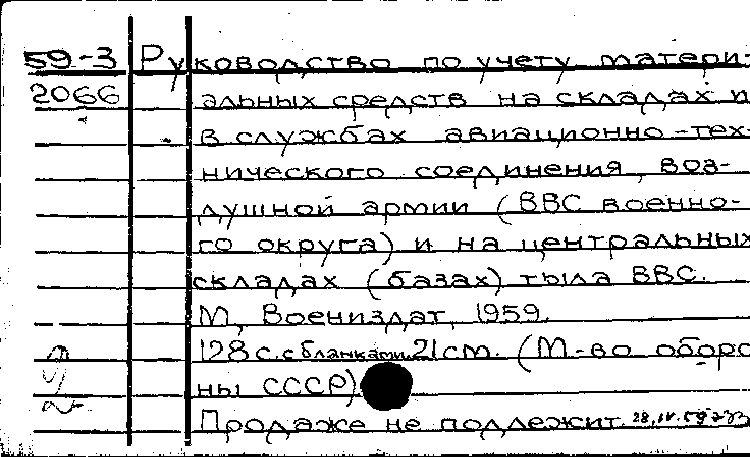 59-3 Руководство по учету матери-
2066 альных средств на складах и
в службах авиационно-тех-
нического соединения, воз-
душной армии (ВВС военно-
го округа) и на центральных
складах (базах) тыла ВВС.
М, Воениздат, 1959.
128 с. с бланками. 21 см. (М-во оборо
ны СССР)
Продаже не подлежит. 28.IV.59